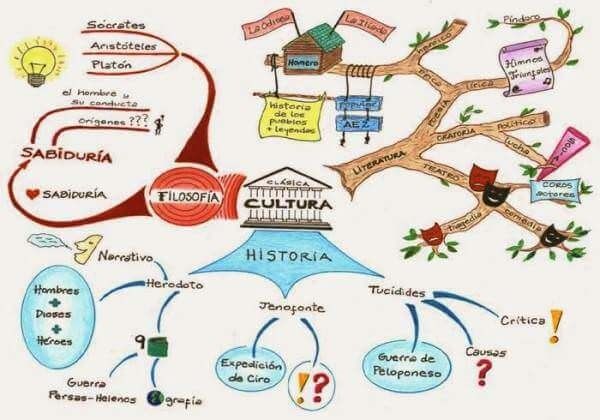 Sócrates
Aristóteles
Platón
el Hombre y
su conducta
Orígenes ???
SABIDURÍA
SABIDURÍA
FILOSOFÍA
CLÁSICA
CULTURA
HISTORIA
La Odisea
La Ilíada
Homero
historia
de los
pueblos
+ leyendas
popular
AEZ
heroico
épica
lírica
POESÍA
Píndaro
Himnos
Triunfales
LITERATURA
ORATORIA
político
lucha
TEATRO
COROS
actores
tragedia
comedia
Narrativo
Herodoto
Hombres
+
Dioses
+
Héroes
9
Guerra
Persas-Helenos
grafía
Jenofonte
Expedición
de Ciro
!?
Tucídides
Guerra de
Peloponeso
Causas
?
Crítica !